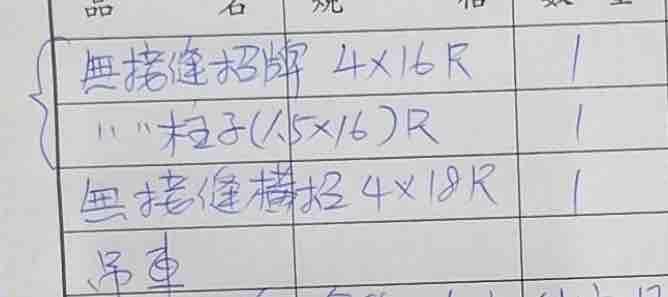 品名 規格 數量
無接縫招牌 4×16R 1
〃 〃 柱子(1.5×16)R 1
無接縫橫招 4×18R 1
吊車